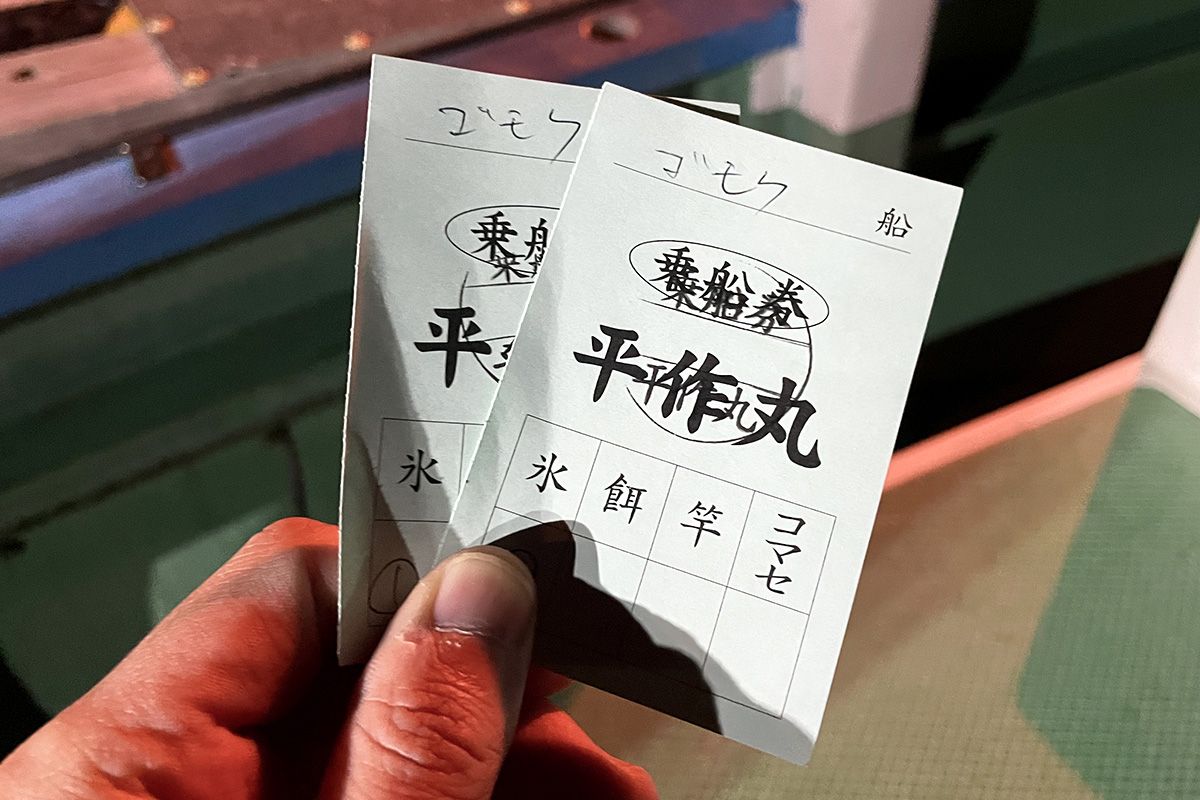 ゴモク
乗船
平
氷
ゴモク
船
乗船券
平作丸
氷 餌 竿 コマセ